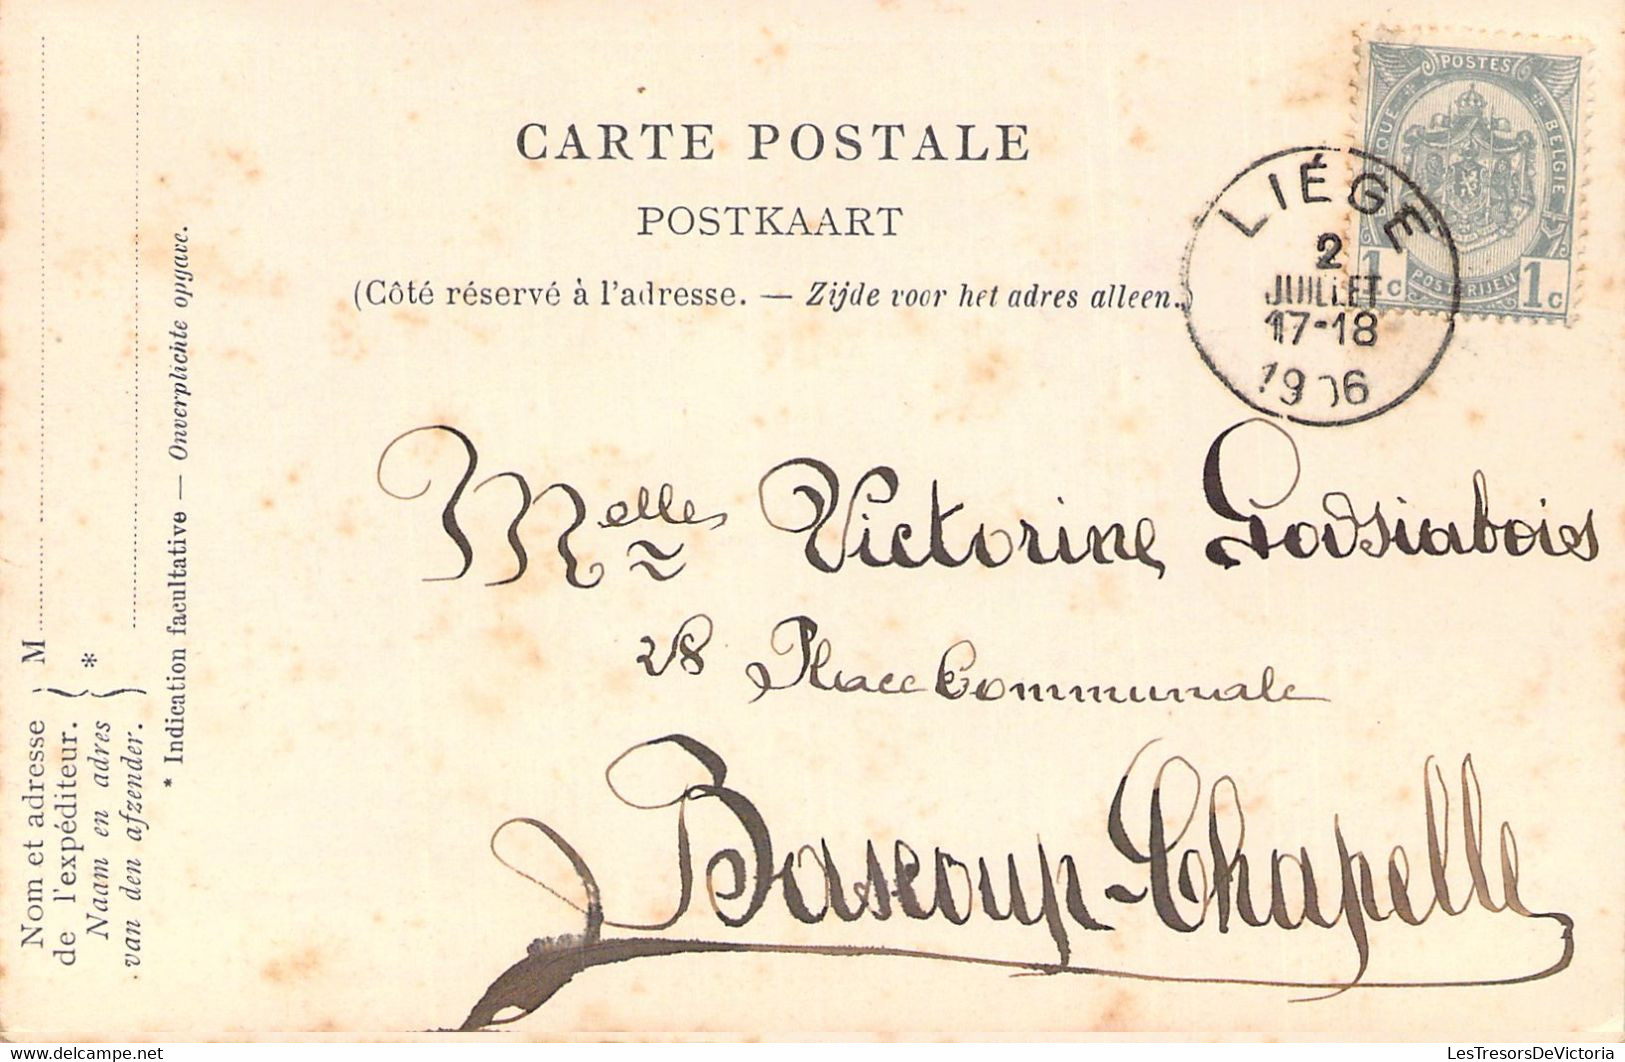 CARTE POSTALE
POSTKAART
(Côté réservé à l'adresse. — Zijde voor het adres alleen.)
POSTES
BELGIE
POSTERIJEN
1c 1c
LIÉGE
2
JUILLET
17-18
1906
Melle Victorine
28 Place Communale
Bascoup-Chapelle
Nom et adresse
de l'expéditeur.
Naam en adres
van den afzender.
M
*
* Indication facultative — Onverplichte opgave.
LesTresorsDeVictoria